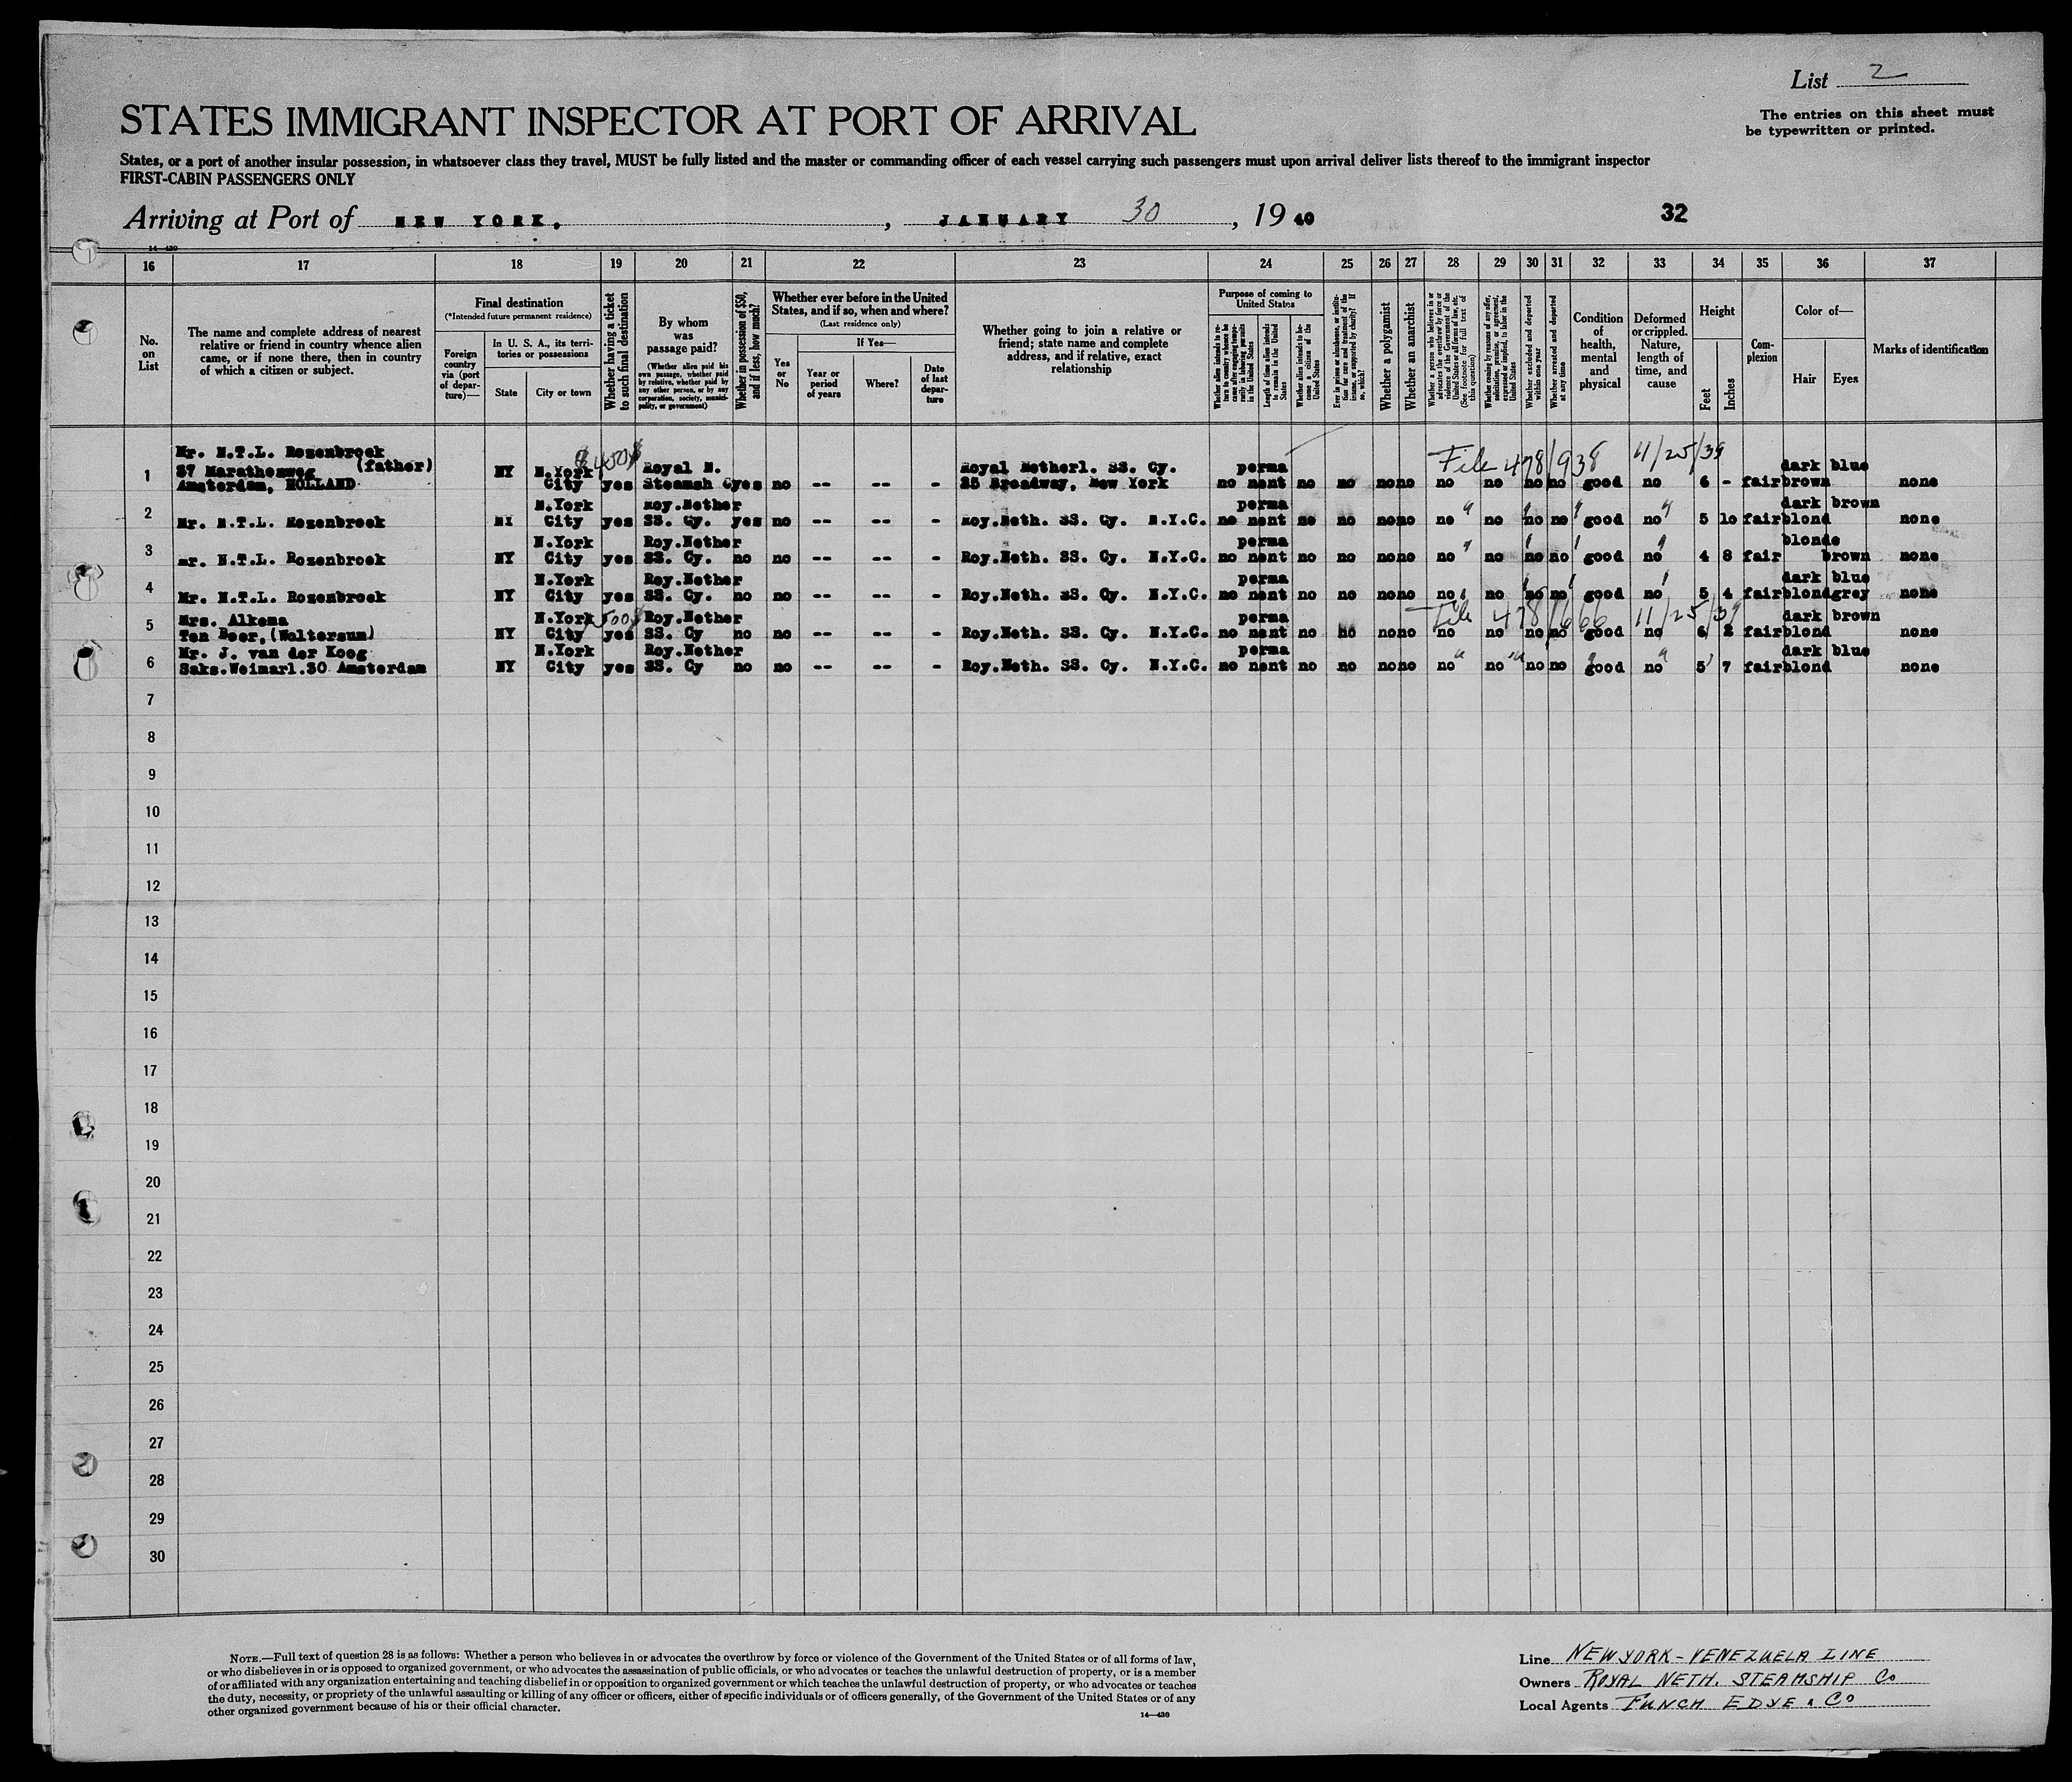 List 2
The entries on this sheet must
be typewritten or printed.
STATES IMMIGRANT INSPECTOR AT PORT OF ARRIVAL
States, or a port of another insular possession, in whatsoever class they travel, MUST be fully listed and the master or commanding officer of each vessel carrying such passengers must upon arrival deliver lists thereof to the immigrant inspector
FIRST-CABIN PASSENGERS ONLY
Arriving at Port of NEW YORK, , JANUARY 30 , 19 40 32
14—430
16 17 18 19 20 21 22 23 24 25 26 27 28 29 30 31 32 33 34 35 36 37
No.
on
List
The name and complete address of nearest
relative or friend in country whence alien
came, or if none there, then in country
of which a citizen or subject.
Final destination
(*Intended future permanent residence)
Foreign
country
via (port
of depar-
ture)—
In U. S. A., its terri-
tories or possessions
State City or town
Whether having a ticket
to such final destination
By whom
was
passage paid?
(Whether alien paid his
own passage, whether paid
by relative, whether paid by
any other person, or by any
corporation, society, munici-
pality, or government)
Whether in possession of $50,
and if less, how much?
Whether ever before in the United
States, and if so, when and where?
(Last residence only)
Yes
or
No
If Yes—
Year or
period
of years
Where?
Date
of last
depar-
ture
Whether going to join a relative or
friend; state name and complete
address, and if relative, exact
relationship
Purpose of coming to
United States
Whether alien intends to re-
turn to country whence he
came after engaging tempo-
rarily in laboring pursuits
in the United States
Length of time alien intends
to remain in the United
States
Whether alien intends to be-
come a citizen of the
United States
Ever in prison or almshouse, or institu-
tion for care and treatment of the
insane, or supported by charity? If
so, which?
Whether a polygamist
Whether an anarchist
Whether a person who believes in or
advocates the overthrow by force or
violence of the Government of the
United States or all forms of law, etc.
(See footnote for full text of
this question)
Whether coming by reason of any offer,
solicitation, promise, or agreement,
expressed or implied, to labor in the
United States
Whether excluded and deported
within one year
Whether arrested and deported
at any time
Condition
of
health,
mental
and
physical
Deformed
or crippled.
Nature,
length of
time, and
cause
Height
Feet
Inches
Com-
plexion
Color of—
Hair Eyes
Marks of identification
Mr. N.T.L. Rozenbroek
(father) File 478/938 11/25/39
1 37 Marathonweg NY N.York Royal N. Royal Netherl. SS. Cy. perma dark blue
Amsterdam, HOLLAND City yes Steamsh Cyes no -- -- - 25 Broadway, New York no nent no no no no no no no no good no 6 - fair brown none
2 N.York Roy.Nether perma dark brown
Mr. N.T.L. Rozenbroek NY City yes SS. Cy. yes no -- -- - Roy.Neth. SS. Cy. N.Y.C. no nent no no no no no no no no good no 5 10 fair blond none
3 N.York Roy.Nether perma blonde
mr. N.T.L. Rozenbroek NY City yes SS. Cy. no no -- -- - Roy.Neth. SS. Cy. N.Y.C. no nent no no no no no no no no good no 4 8 fair brown none
4 N.York Roy.Nether perma dark blue
Mr. N.T.L. Rozenbroek NY City yes SS. Cy. no no -- -- - Roy.Neth. SS. Cy. N.Y.C. no nent no no no no no no no no good no 5 4 fair blond grey none
5 Mrs. Alkema N.York 500$ Roy.Nether perma File 478/666 11/25/39 dark brown
Ten Boer, (Woltersum) NY City yes SS. Cy no no -- -- - Roy.Neth. SS. Cy. N.Y.C. no nent no no no no no no no no good no 6 2 fair blond none
6 Mr. J. van der Koog N.York Roy.Nether perma dark blue
Saks.Weimarl.30 Amsterdam NY City yes SS. Cy no no -- -- - Roy.Neth. SS. Cy. N.Y.C. no nent no no no no no no no no good no 5 7 fair blond none
7
8
9
10
11
12
13
14
15
16
17
18
19
20
21
22
23
24
25
26
27
28
29
30
NOTE.—Full text of question 28 is as follows: Whether a person who believes in or advocates the overthrow by force or violence of the Government of the United States or of all forms of law,
or who disbelieves in or is opposed to organized government, or who advocates the assassination of public officials, or who advocates or teaches the unlawful destruction of property, or is a member
of or affiliated with any organization entertaining and teaching disbelief in or opposition to organized government or which teaches the unlawful destruction of property, or who advocates or teaches
the duty, necessity, or propriety of the unlawful assaulting or killing of any officer or officers, either of specific individuals or of officers generally, of the Government of the United States or of any
other organized government because of his or their official character.
14—430
Line NEW YORK - VENEZUELA LINE
Owners ROYAL NETH. STEAMSHIP Co
Local Agents FUNCH EDYE & Co